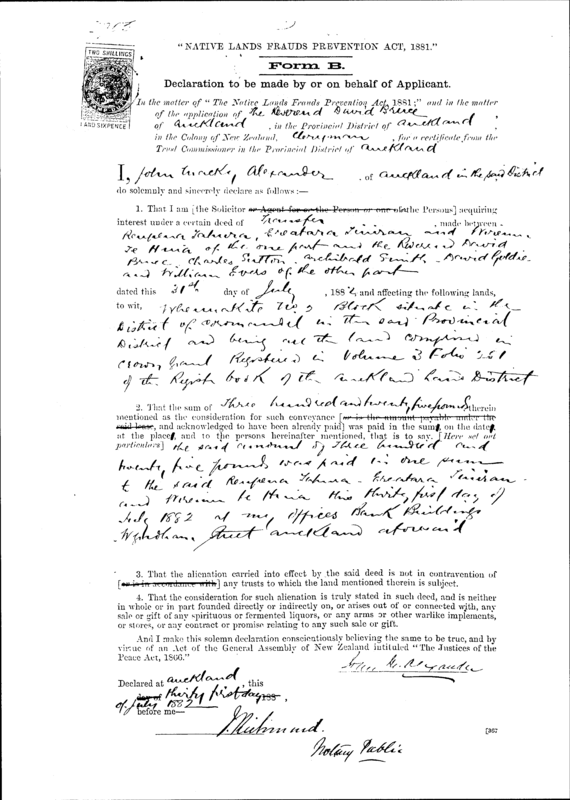 TWO SHILLINGS
AND SIXPENCE
"NATIVE LANDS FRAUDS PREVENTION ACT, 1881."
Form B.
Declaration to be made by or on behalf of Applicant.
In the matter of "The Native Lands Frauds Prevention Act, 1881;" and in the matter
of the application of The Reverend David Bruce
of Auckland, in the Provincial District of Auckland
in the Colony of New Zealand, Clergyman, for a certificate from the
Trust Commissioner in the Provincial District of Auckland
I, John Alexander, of Auckland in the said District
do solemnly and sincerely declare as follows:—
1. That I am [the Solicitor or Agent for or the Person or one of the Persons] acquiring
interest under a certain deed of Transfer, made between
and Wiremu
Te Huia of the one part and the Reverend David
Bruce Charles Sutton Archibald Smith David Goldie
and William Evers of the other part
dated this 31st day of July, 1882, and affecting the following lands,
to wit, No 2 Block situate in the
District of Coromandel in the said Provincial
District and being all the land comprised in
Crown Grant Registered in Volume 3 Folio 251
of the Register book of the Auckland Land District
2. That the sum of Three hundred and twenty five pounds therein
mentioned as the consideration payable for such conveyance [or is the amount payable under the
said lease, and acknowledged to have been already paid] was paid in the sum, on the date,
at the place, and to the persons hereinafter mentioned, that is to say, [Here set out
particulars] the said amount of Three hundred and
twenty five pounds was paid in one sum
to the said
and Wiremu Te Huia this thirty first day of
July 1882 at my offices Bank Buildings
Wyndham Street Auckland aforesaid
3. That the alienation carried into effect by the said deed is not in contravention of
[or is in accordance with] any trusts to which the land mentioned therein is subject.
4. That the consideration for such alienation is truly stated in such deed, and is neither
in whole or in part founded directly or indirectly on, or arises out of or connected with, any
sale or gift of any spirituous or fermented liquors, or any arms or other warlike implements,
or stores, or any contract or promise relating to any such sale or gift.
And I make this solemn declaration conscientiously believing the same to be true, and by
virtue of an Act of the General Assembly of New Zealand intituled "The Justices of the
Peace Act, 1866."
John M. Alexander
Declared at Auckland, this
day of thirty first day 188 ,
of July 1882
before me—
J. Richmond.
Notary Public
[367